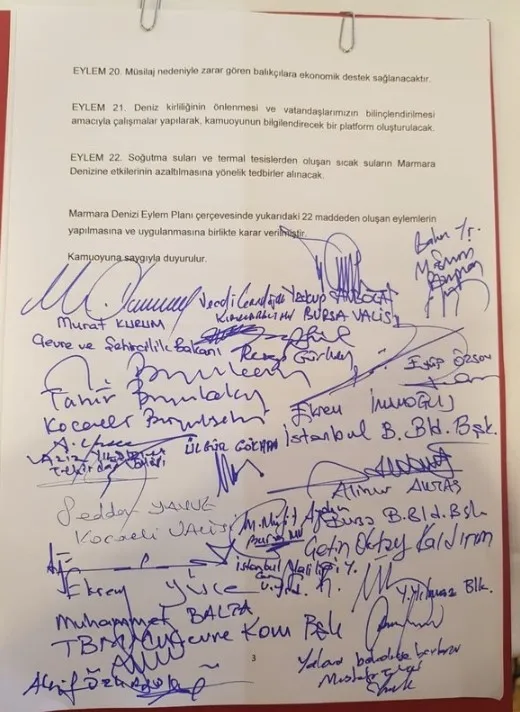 EYLEM 20. Müsilaj nedeniyle zarar gören balıkçılara ekonomik destek sağlanacaktır.
EYLEM 21. Deniz kirliliğinin önlenmesi ve vatandaşlarımızın bilinçlendirilmesi
amacıyla çalışmalar yapılarak, kamuoyunun bilgilendirecek bir platform oluşturulacak.
EYLEM 22. Soğutma suları ve termal tesislerden oluşan sıcak suların Marmara
Denizine etkilerinin azaltılmasına yönelik tedbirler alınacak.
Marmara Denizi Eylem Planı çerçevesinde yukarıdaki 22 maddeden oluşan eylemlerin
yapılmasına ve uygulanmasına birlikte karar verilmiştir.
Kamuoyuna saygıyla duyurulur.
Bakan Yr.
Yakup CANBOLAT
BURSA VALİSİ
Murat KURUM
Çevre ve Şehircilik Bakanı
Recep Gürkan
Eşüp ÖZSOY
Tahir Büyükakın
Ekrem İMAMOĞLU
Kocaeli Büyükşehir
İstanbul B. Bld. Bşk.
Aziz
Tekirdağ Valisi
ÜLGÜR GÖKHAN
Alinur AKTAŞ
Bursa B.Bld.Bşk
Seddar YAVUZ
Kocaeli VALİSİ
M. Müfit Aydın
Bursa MV
Çetin Oktay Kaldırım
İstanbul Valiliği
Ekrem Yüce
Y. Yılmaz Blk.
Muhammet BALTA
TBMM Çevre Kom Bşk
3
Yalova
Mustafa
Akif